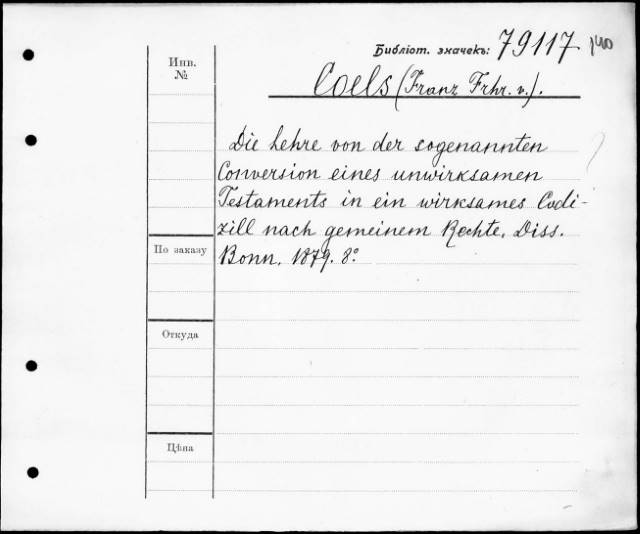 Библіот. значекъ: 79117
140
Инв.
№
Coels (Franz Frhr. v.).
Die Lehre von der sogenannten
Conversion eines unwirksamen
Testaments in ein wirksames Codi-
zill nach gemeinem Rechte. Diss.
Bonn. 1879. 8°
По заказу
Откуда
Цѣна